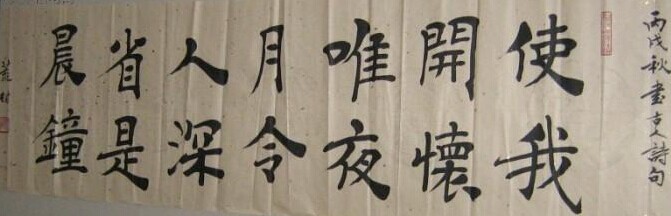 丙戌秋書古人詩句
使我
開懷
唯夜
月令
人深
省是
晨鐘